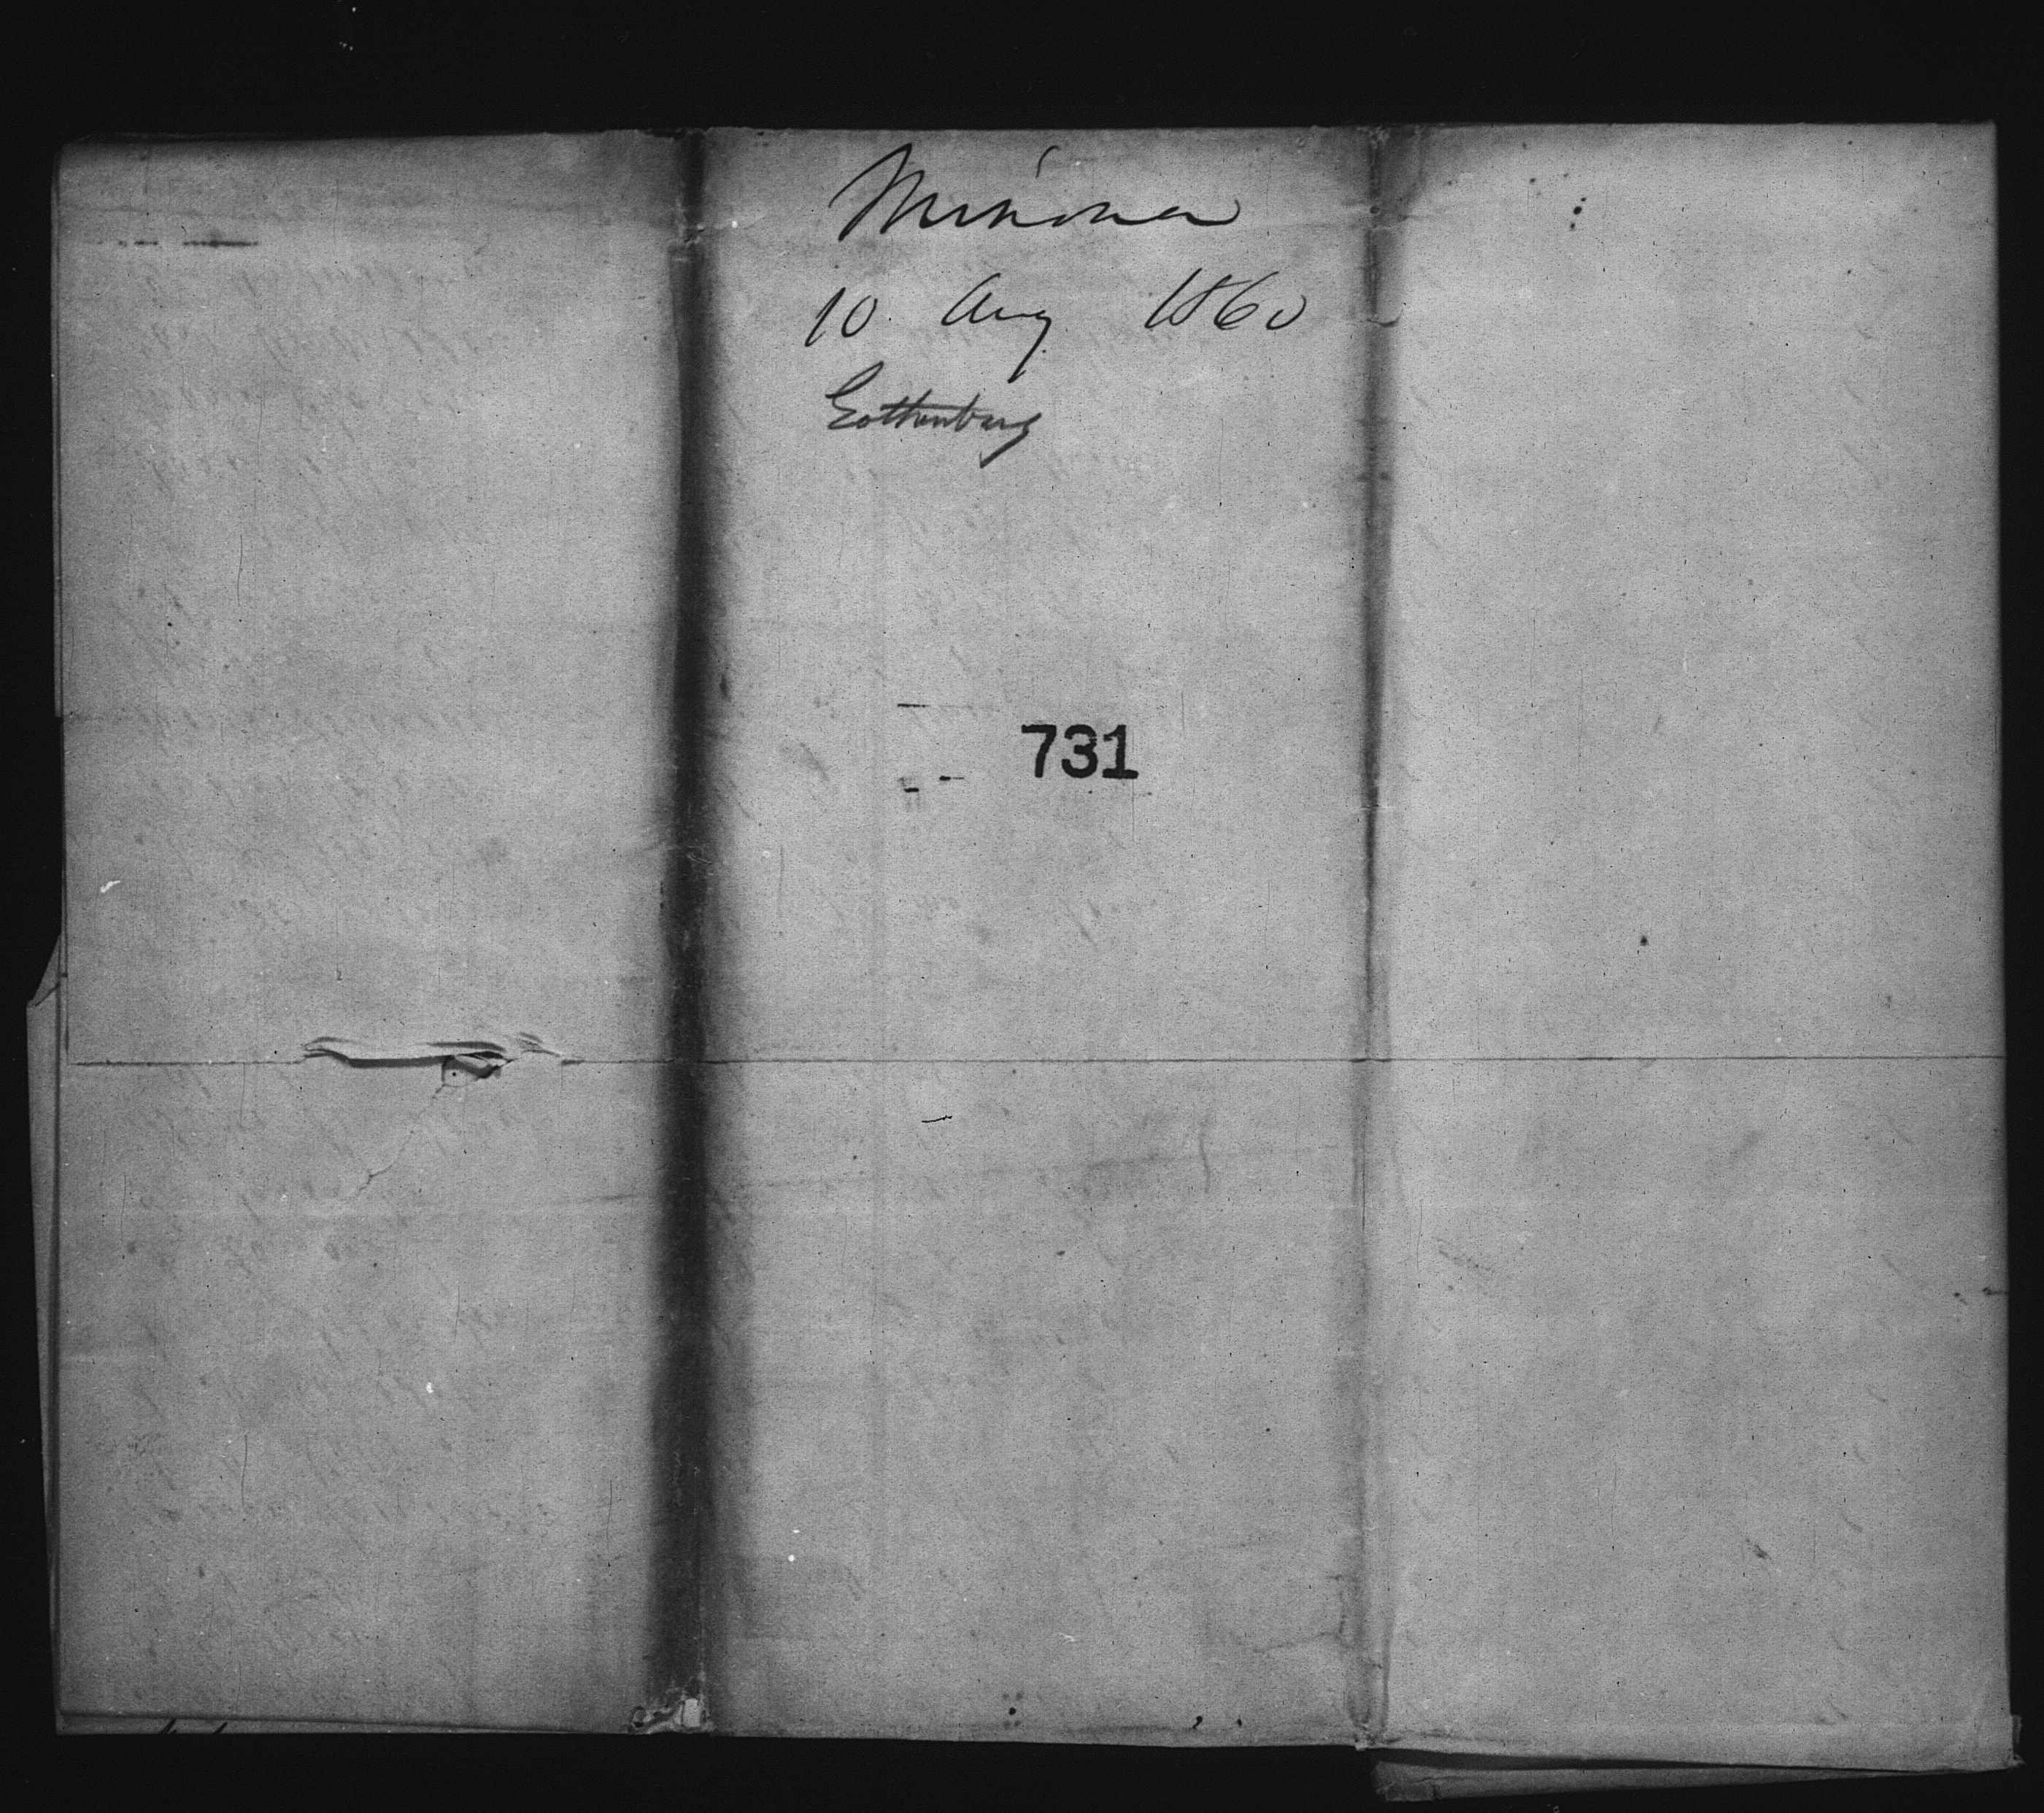 Minona
10 Aug 1860
Gottenburg
731